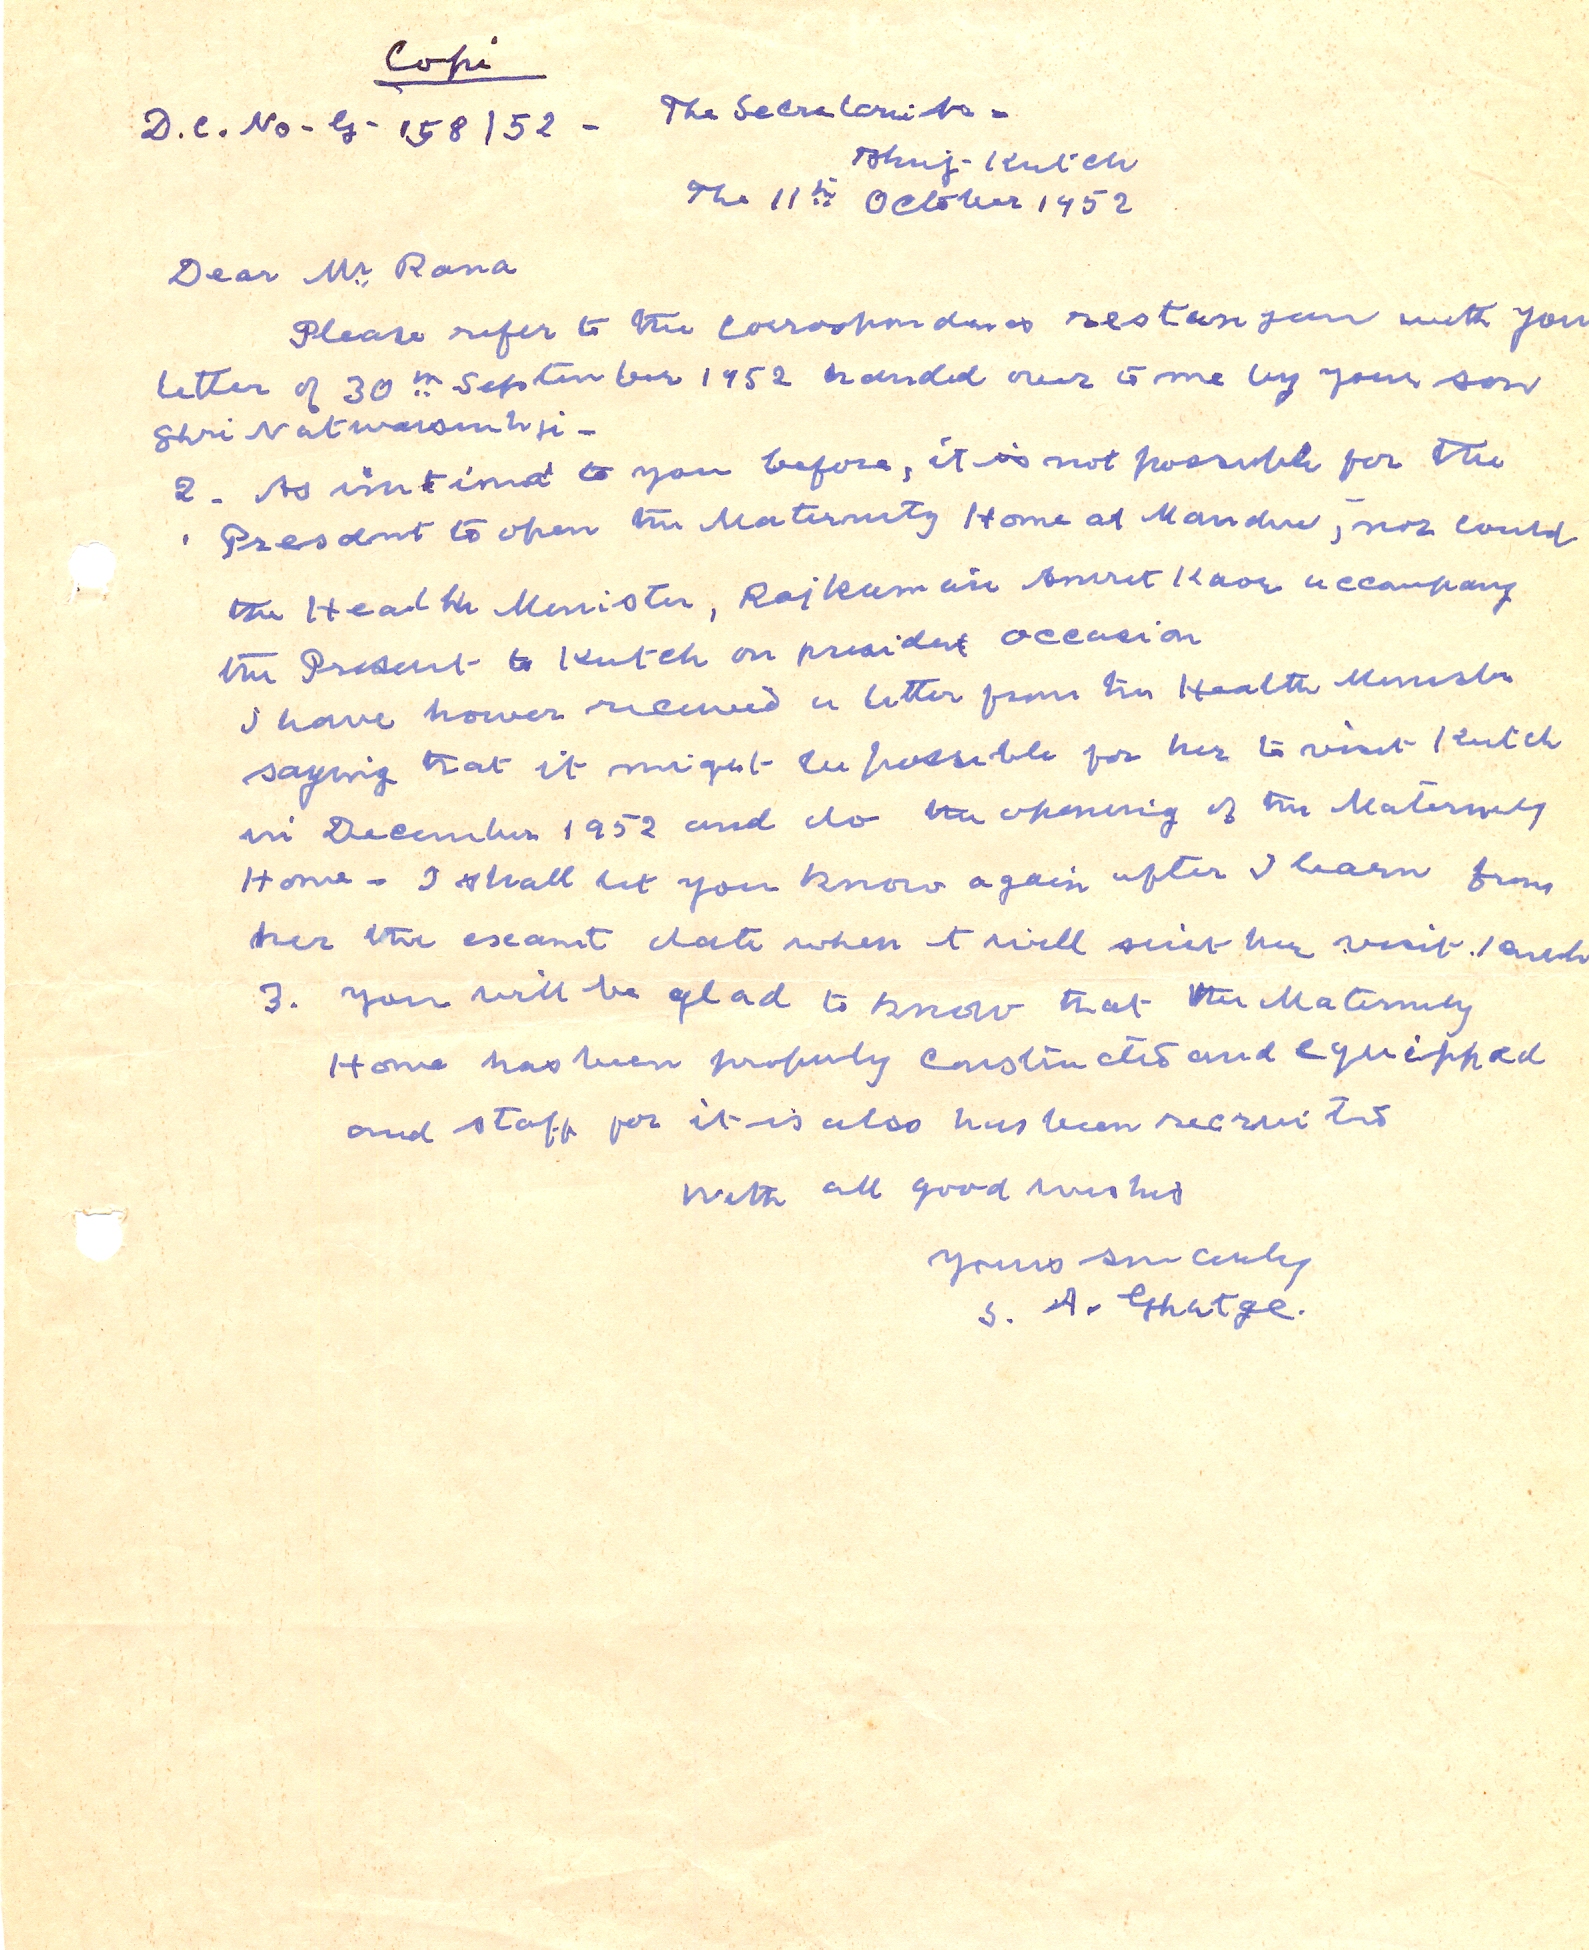 Copi
D.C. No-G-158/52 - The Secretariate -
Bhuj-Kutch
The 11th October 1952
Dear Mr. Rana
Please refer to the with your
letter of 30th September 1952 handed over to me by your son
Shri Natwarsinhji -
2 - As to you before, it is not possible for the
Presdnt to open the Maternity Home at Mandvi, nor could
the Health Minister, Rajkumari Amrit Kaor accompany
the Present to Kutch on president occasion
I have hower received a letter from the Health Minister
saying that it might be possible for her to visit Kutch
in December 1952 and do the opening of the Maternity
Home - I shall let you know again after I learn from
her the date when t will suit her visit
3. you will be glad to know that the Maternity
Home has been properly constructed and equipped
and staff for it is also has been recruited
With all good wishes
Yours sincerely
S. A. Ghatge.